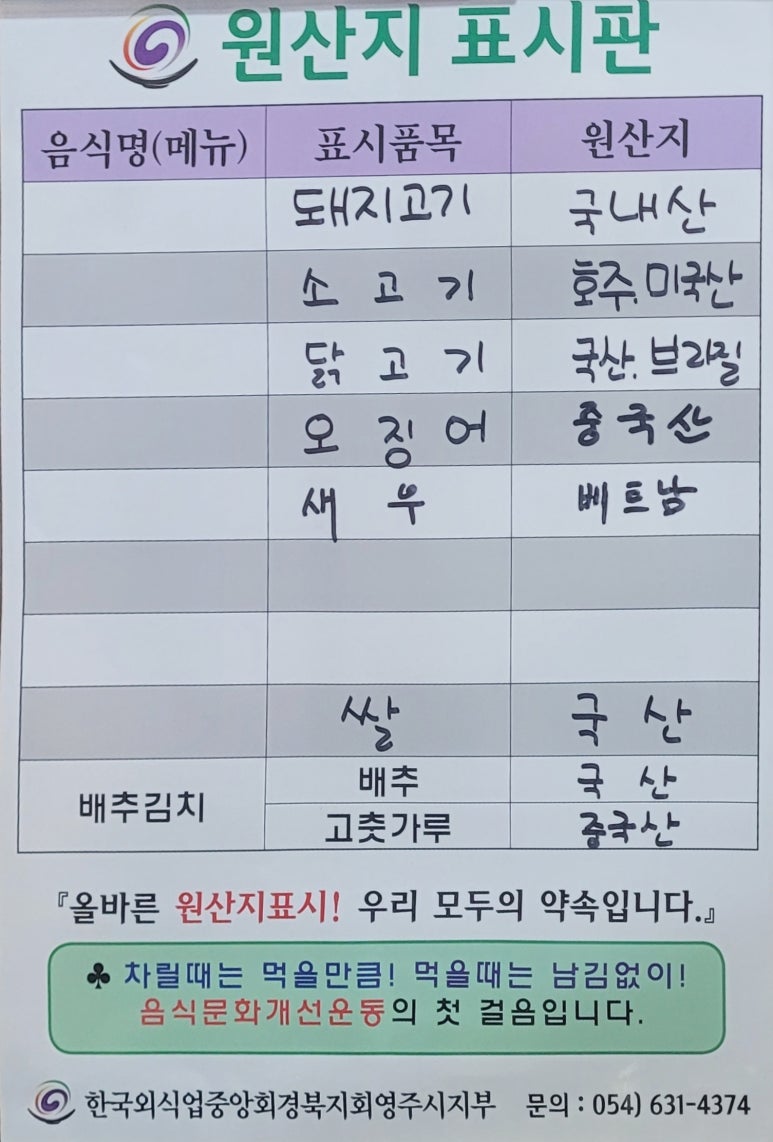 원산지 표시판
음식명(메뉴) 표시품목 원산지
돼지고기 국내산
소고기 호주.미국산
닭고기 국산.브라질
오징어 중국산
새우 베트남
쌀 국산
배추김치 배추 국산
고춧가루 중국산
『올바른 원산지표시! 우리 모두의 약속입니다.』
♣ 차릴때는 먹을만큼! 먹을때는 남김없이!
음식문화개선운동의 첫 걸음입니다.
한국외식업중앙회경북지회영주시지부 문의 : 054) 631-4374